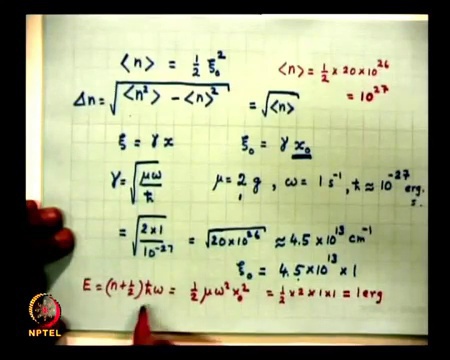 <n> = 1/2 ξ₀²
<n> = 1/2 × 20 × 10²⁶
= 10²⁷
Δn = √(<n²> − <n>²) = √<n>
ξ = γ x    ξ₀ = γ x₀
γ = √(μω/ħ)    μ = 2 g, ω = 1 s⁻¹, ħ ≈ 10⁻²⁷ erg. s.
= √(2×1/10⁻²⁷) = √(20×10²⁶) ≈ 4.5 × 10¹³ cm⁻¹
ξ₀ = 4.5 × 10¹³ × 1
E = (n+1/2)ħω = 1/2 μω²x₀² = 1/2 × 2 × 1 × 1 = 1 erg
NPTEL